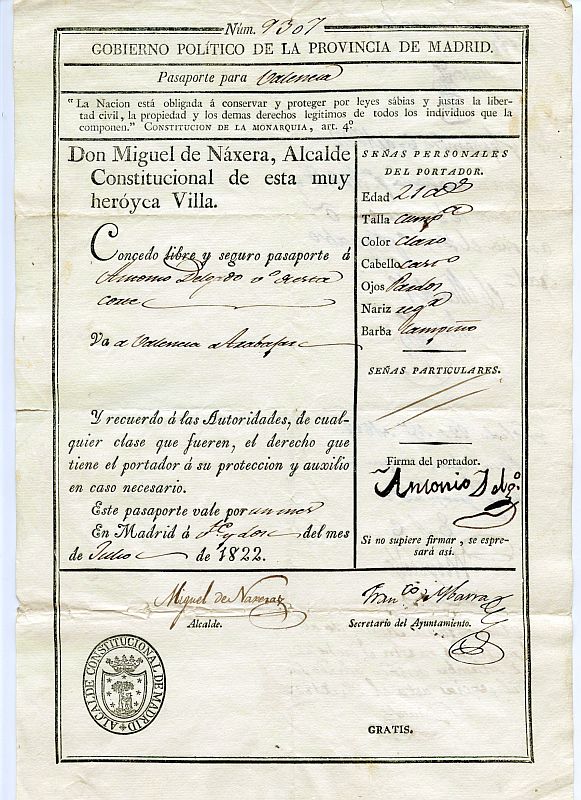 Núm. 9307
GOBIERNO POLÍTICO DE LA PROVINCIA DE MADRID.
Pasaporte para Valencia
“La Nacion está obligada á conservar y proteger por leyes sábias y justas la liber-
tad civil, la propiedad y los demas derechos legítimos de todos los individuos que la
componen.” CONSTITUCION DE LA MONARQUIA, art. 4º
Don Miguel de Náxera, Alcalde
Constitucional de esta muy
heróyca Villa.
Concedo libre y seguro pasaporte á
Antonio Delgado vº de esta
corte
Va a Valencia a
Y recuerdo á las Autoridades, de cual-
quier clase que fueren, el derecho que
tiene el portador á su proteccion y auxilio
en caso necesario.
Este pasaporte vale por un mes
En Madrid á del mes
de Julio de 1822.
SEÑAS PERSONALES
DEL PORTADOR.
Edad 21 aˢ
Talla
Color claro
Cabello castº
Ojos Pardos
Nariz regʳ
Barba Lampiño
SEÑAS PARTICULARES.
Firma del portador.
Antonio Delgº
Si no supiere firmar, se espre-
sará así.
Miguel de Naxera
Alcalde.
Franᶜº de Ybarra
Secretario del Ayuntamiento.
ALCALDE CONSTITUCIONAL DE MADRID
GRATIS.